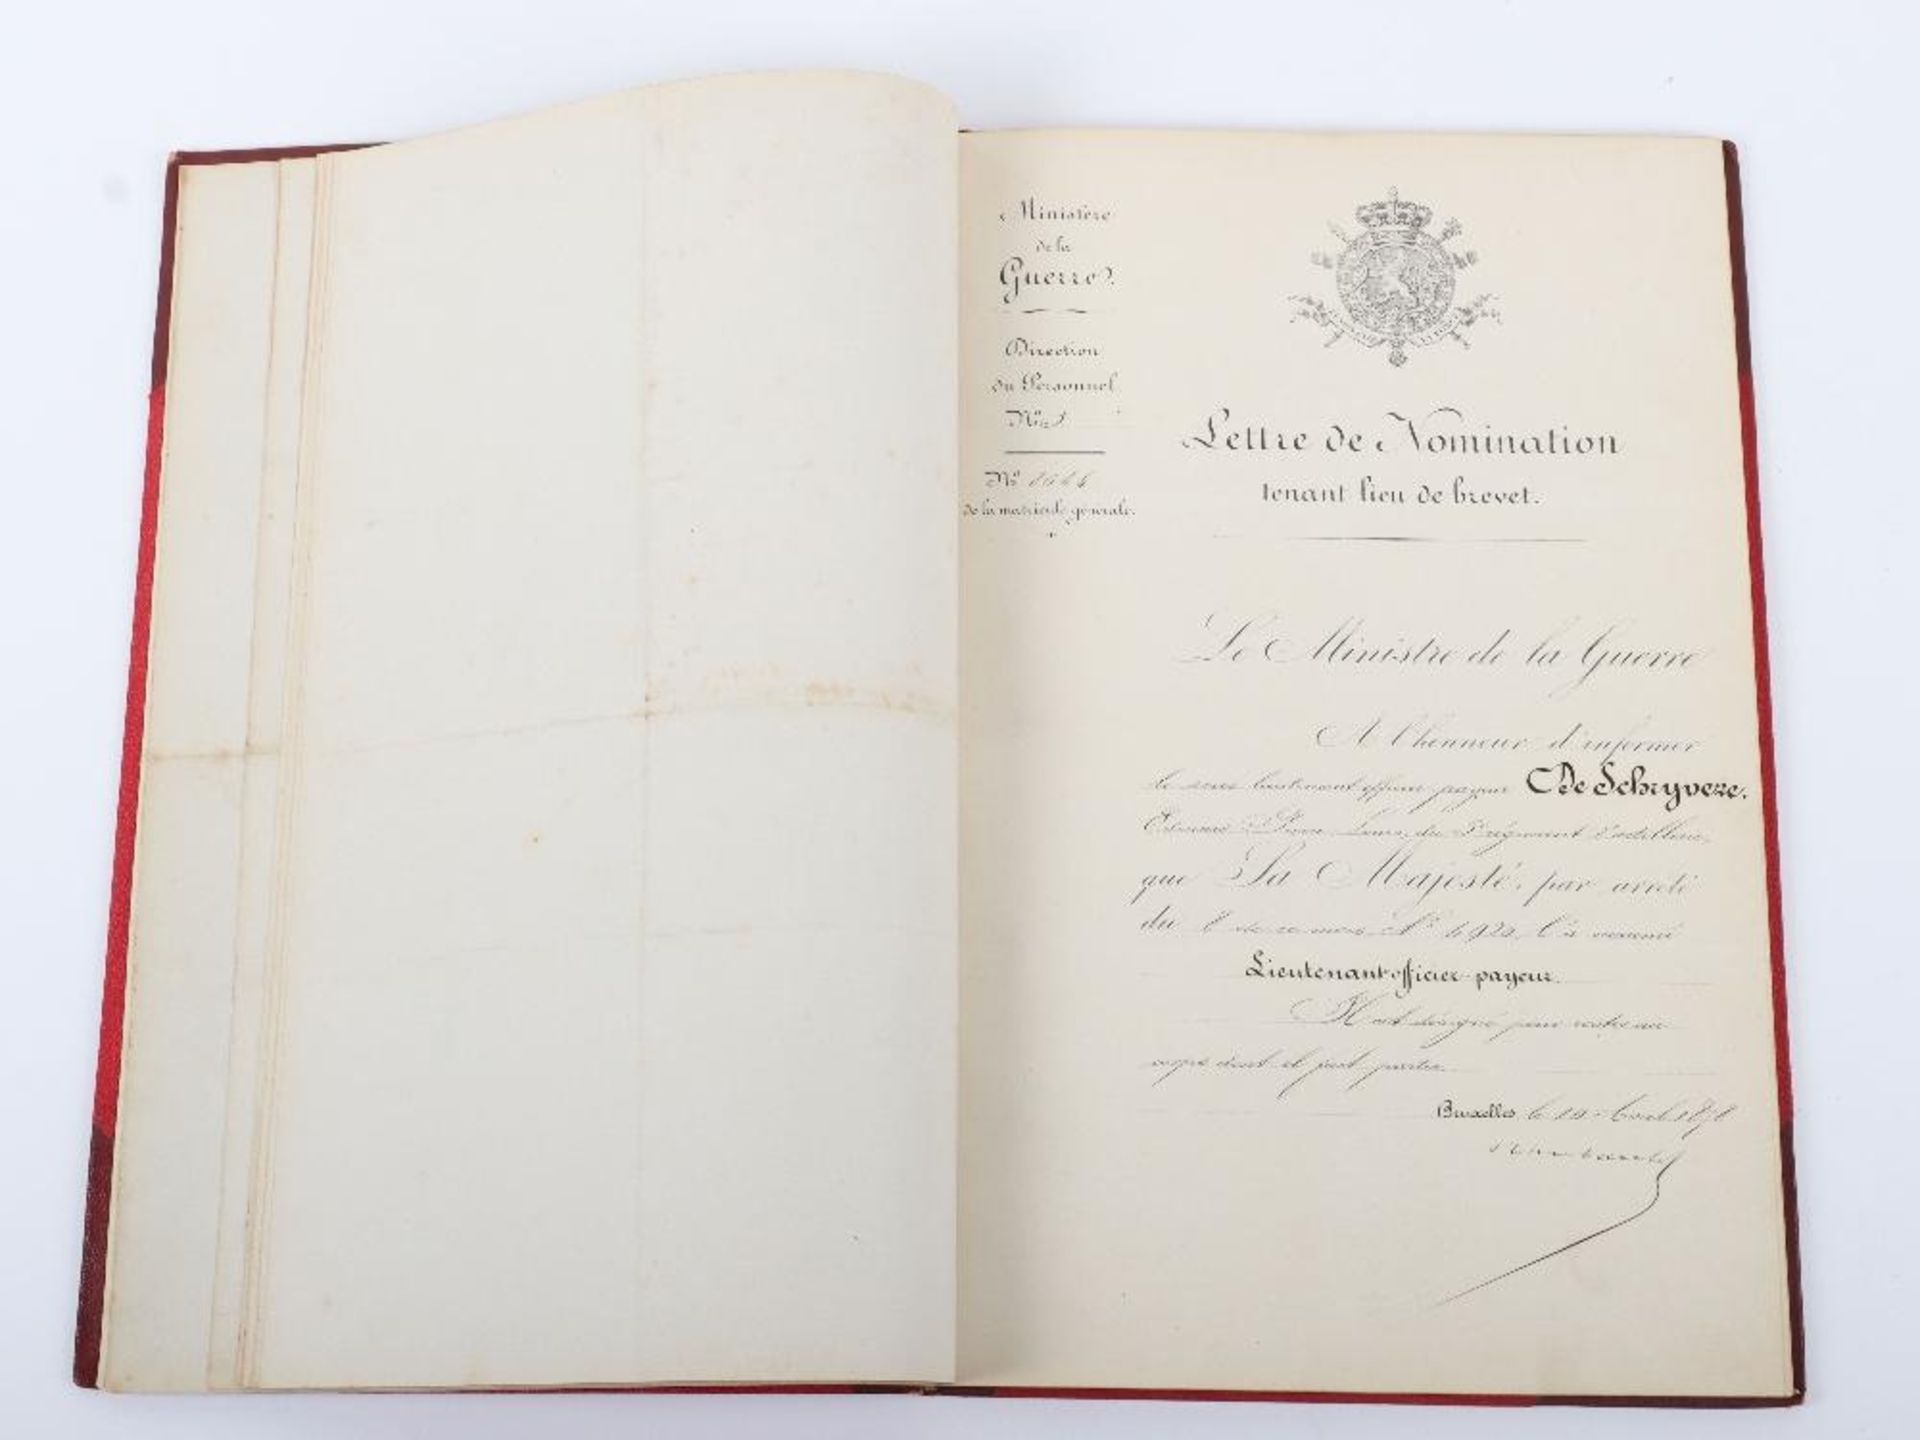 Ministère
de la
Guerre.
Direction
du Personnel
No
No
de la matricule générale.
Lettre de Nomination
tenant lieu de brevet.
Le Ministre de la Guerre
A l'honneur d'informer
le sous lieutenant officier payeur De Schryvere.
régiment d'artillerie,
que Sa Majesté, par arrêté
du 8 de ce mois No 4920, l'a nommé
Lieutenant-officier-payeur.
Il est désigné pour rester au
corps dont il fait partie.
Bruxelles, le 10 Avril